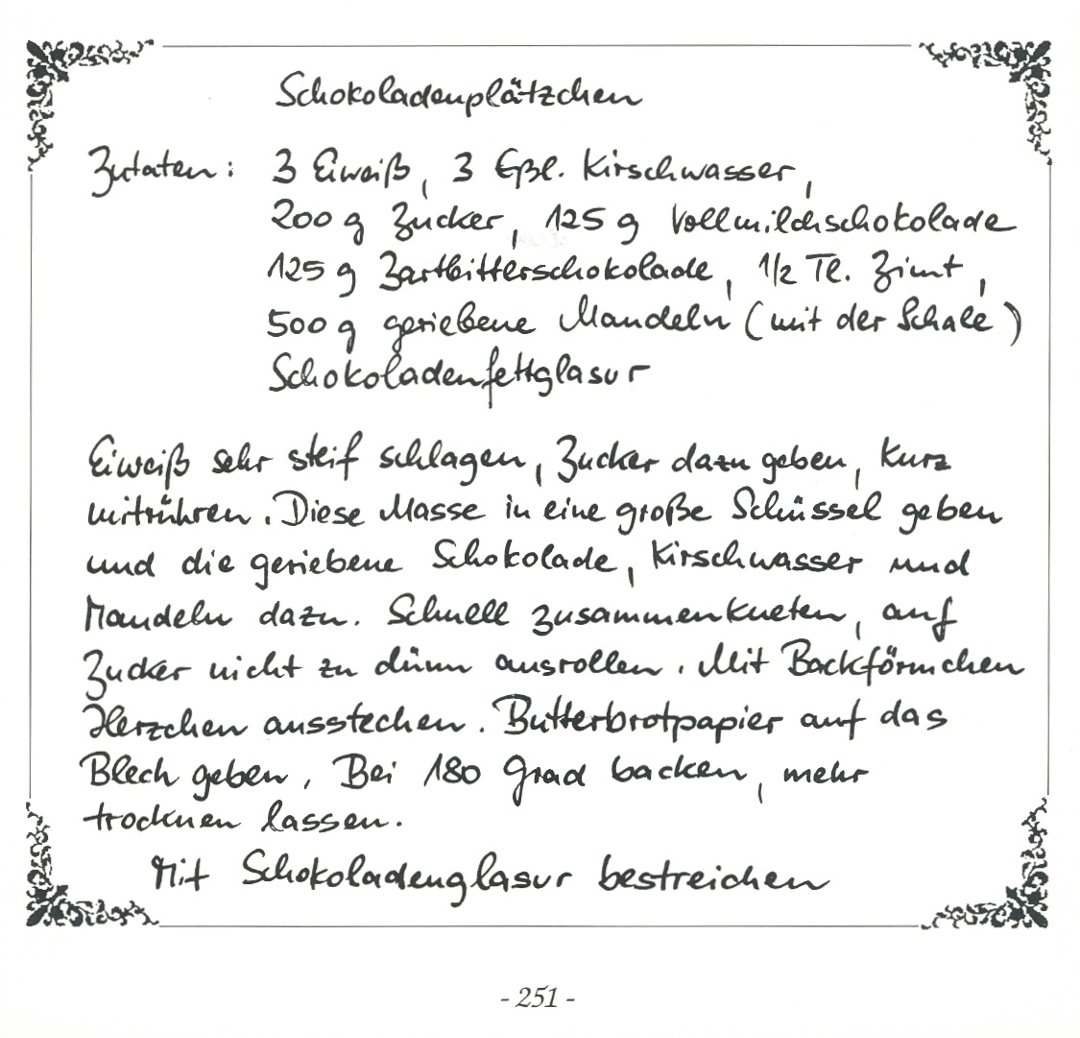 Schokoladenplätzchen
Zutaten: 3 Eiweiß, 3 Eßl. Kirschwasser,
200 g Zucker, 125 g Vollmilchschokolade
125 g Zartbitterschokolade, 1/2 Tl. Zimt,
500 g geriebene Mandeln (mit der Schale)
Schokoladenfettglasur
Eiweiß sehr steif schlagen, Zucker dazu geben, kurz
mitrühren. Diese Masse in eine große Schüssel geben
und die geriebene Schokolade, Kirschwasser und
Mandeln dazu. Schnell zusammenkneten, auf
Zucker nicht zu dünn ausrollen. Mit Backförmchen
Herzchen ausstechen. Butterbrotpapier auf das
Blech geben, Bei 180 Grad backen, mehr
trocknen lassen.
Mit Schokoladenglasur bestreichen
- 251 -